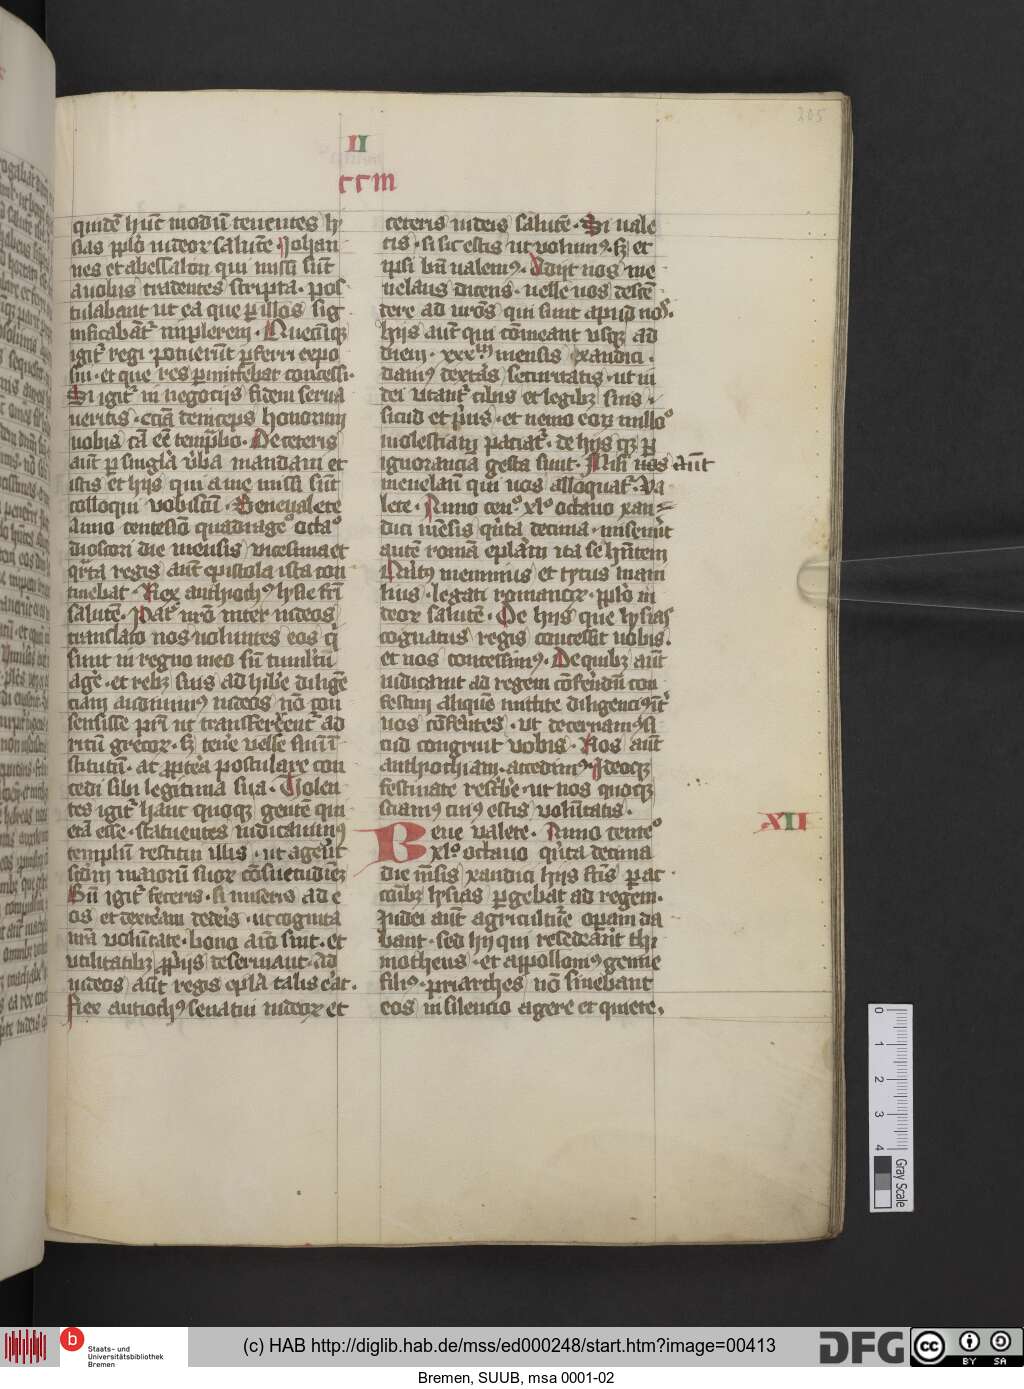 205
II
ccm
quidē hūt modū tenentes ly
sias pplo iudeoꝝ salutē Johan
nes et abessalon qui missi sūt
a uobis tradentes scripta . pos
tulabant ut ea que ꝑ illos sig
nificabāt᷑ implerem . Quecūqꝫ
igit᷑ regi potuerūt ꝑferri expo
sui . et que res ꝑmittebat concessi .
Si igit᷑ in negocijs fidem serua
ueritis . etiā deinceps honorum
uobis cā eē temptabo . De ceteris
aūt ꝑ singla u̓ba mandaui et
istis et hijs qui a me missi sūt
colloqui vobiscū . Beneualete
Anno centesīo quadrageº octaº
dioscori die mensis vicesima et
qͣrta regis aūt epistola ista con
tinebat . Rex anthiochꝰ lysie frī
salutē . Patͤ nr̄o inter ideos
translato nos uolentes eos qͥ
sunt in regno meo sin̄ tumltū
agͤe . et rebꝫ suis ad hibͤe diligē
ciam audiuimꝰ iudeos nō con
sensisse pr̄i ut transferrent᷑ ad
ritū grecoꝝ . sꝫ tenͤe velle suū ī
stitutū . ac ꝓpterea postulare con
cedi sibi legitima sua . Volen
tes igit᷑ hanc quoqꝫ gentē qui
etā esse . statuentes iudicauimꝰ
templū restitui illis . ut agerēt
scdm maiorū suoꝝ cōsuetudinē
Bn̄ igit᷑ feceris . si miseris ad e
os et dexteram dederis . ut cognita
nr̄a volūtate . bono aīo sint . et
utilitatibꝫ ꝓprijs deseruiant . Ad
iudeos aūt regis epla talis erat .
Rex antiochꝰ senatui iudeoꝝ et
ceteris iudeis salutē . Si uale
tis . si sic estis ut volumꝰ . sꝫ et
ipsi bn̄ ualemꝰ . Adijt nos me
nelaus dicens . uelle uos descē
dere ad vr̄os qui sunt apud nos .
hijs aūt qui cōmeant vsqꝫ ad
diem . xxxᵐ mensis xandici .
damꝰ dextras securitatis . ut iu
dei utant᷑ cibis et legibꝫ suis .
sicud et pͥus . et nemo eoꝝ ullo
molestiam paciat᷑ . de hijs qꝫ ꝑ
ignorancia gesta sunt . Misi nos aūt
menelaū qui uos alloquat᷑ . Va
lete . Anno cenº xlº octauo xan
dici mēsis qͥnta decima . miserūt
autē romai eplam ita se hn̄tem
Quītꝰ memmius et tytus mani
lius . legati romanoꝝ . pplo iu
deoꝝ salutē . De hijs que lysias
cognatus regis concessit uobis .
et nos concessimꝰ . De quibꝫ aūt
iudicauit ad regem refͤendū con
festim aliquē mittite diligenciꝰ īt̄
uos cōferentes . ut decernamꝰ si
cud congruit vobis . Nos aūt
anthiochiam . accedimꝰ . Ideoqꝫ
festinate rescͥbe . ut nos quoqꝫ
sciamꝰ cuiꝰ estis volūtatis .
Bene valete . Anno centeº
xlº octauo qͥnta decima
die mēsis xandici hijs fc̄is ꝑ ac
cōibꝫ lysias ꝑgebat ad regem .
Iudei aūt agriculturͤ opam da
bant . sed hij qui resederāt thi
motheus . et appolloniꝰ genne
filiꝰ . priarches nō sinebant
eos in silencio agere et quiete .
XII
0 1 2 3 4
Gray Scale
Staats- und
Universitätsbibliothek
Bremen
(c) HAB http://diglib.hab.de/mss/ed000248/start.htm?image=00413
DFG
cc
BY SA
Bremen, SUUB, msa 0001-02